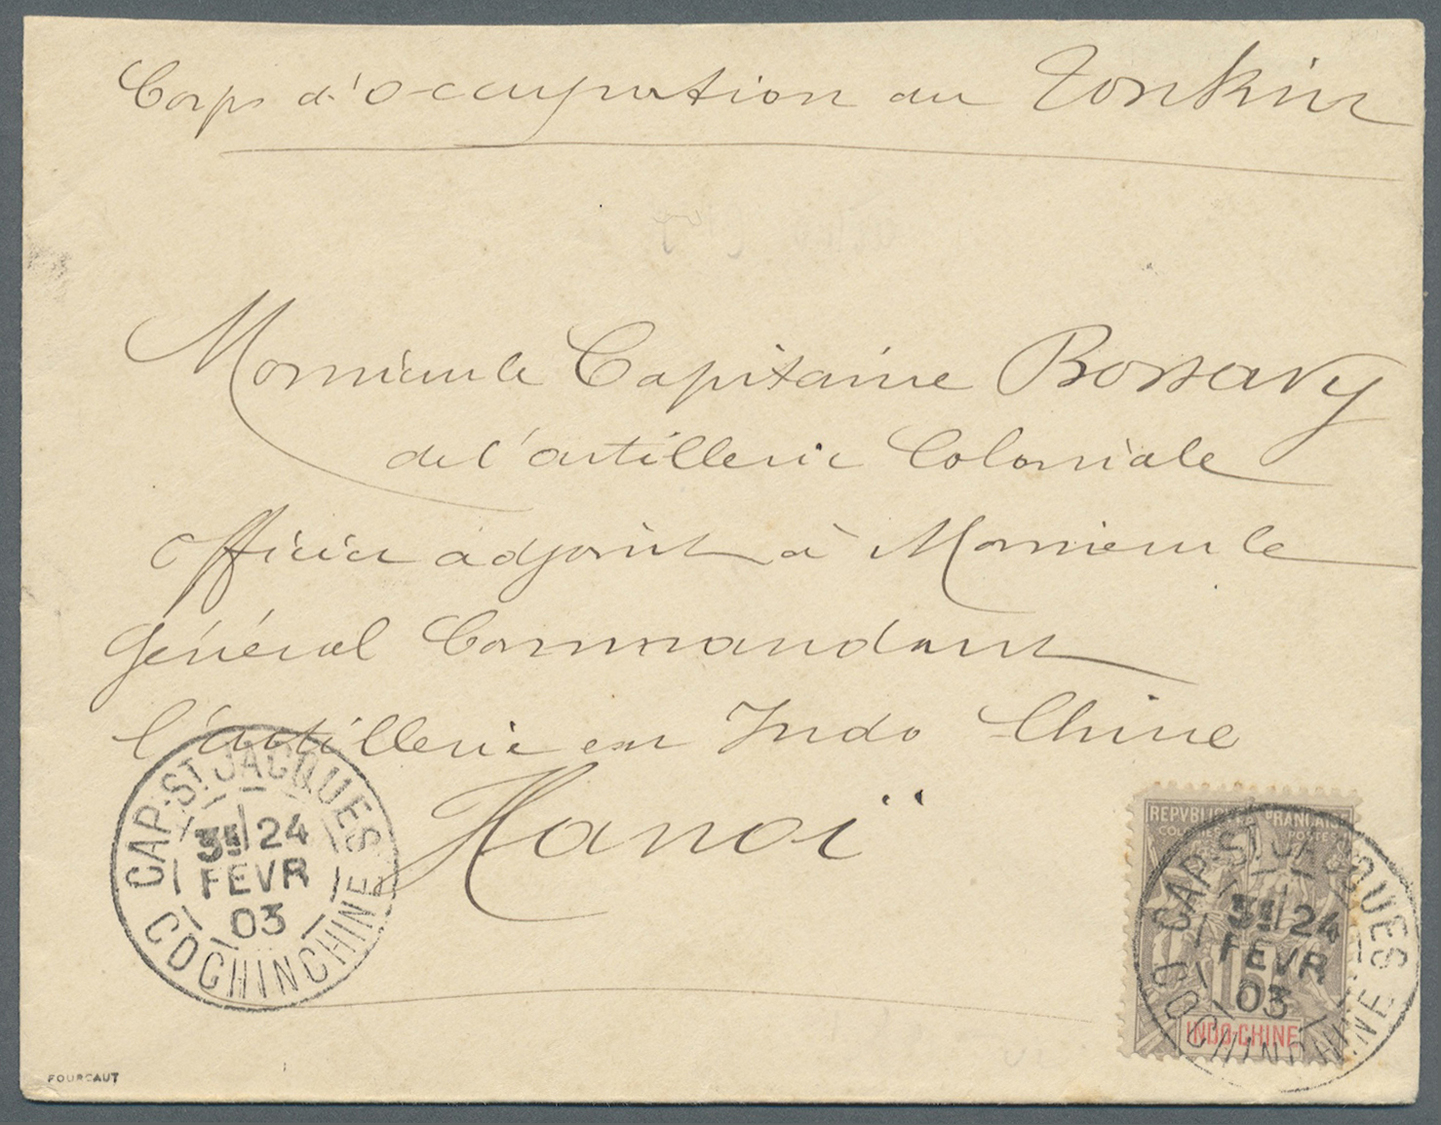 Corps d'occupation au Tonkin
Monsieur le Capitaine Bossavy
de l'artillerie Coloniale
officier adjoint à Monsieur le
Général Commandant
l'artillerie en Indo Chine
Hanoï
CAP-ST JACQUES
3E/24
FEVR
03
COCHINCHINE
REPVBLIQVE FRANÇAISE
COLONIES POSTES
CAP-ST JACQUES
3E/24
FEVR
03
COCHINCHINE
15
INDO-CHINE
FOURCAUT